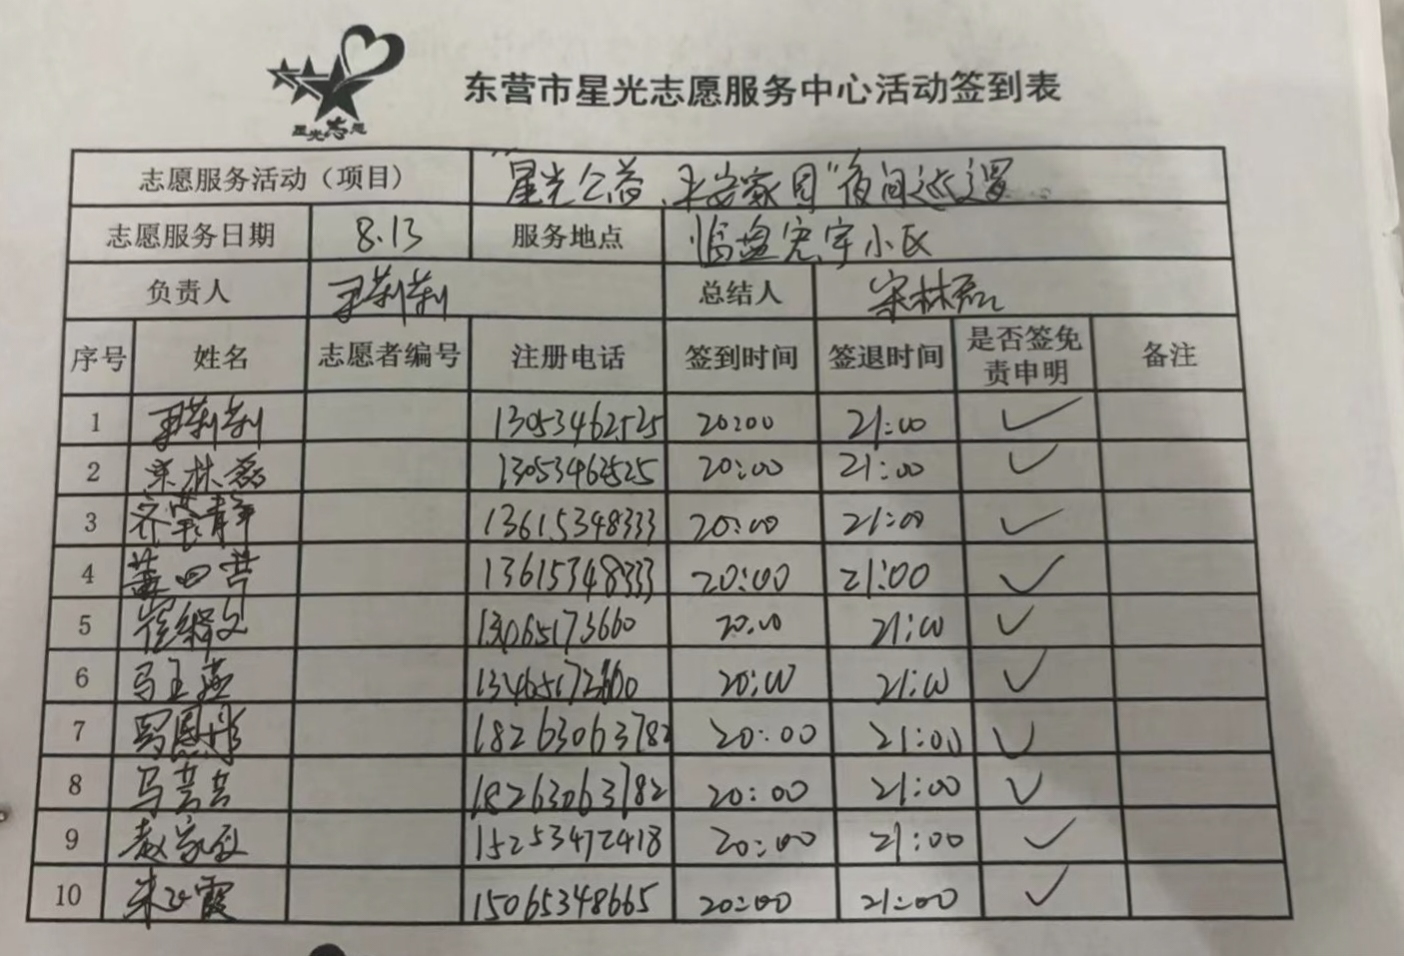 星光志愿
东营市星光志愿服务中心活动签到表
志愿服务活动（项目） "星光公益、平安家园"夜间巡逻
志愿服务日期 8.13 服务地点 临盘宏宇小区
负责人 王莉莉 总结人 宋林磊
序号 姓名 志愿者编号 注册电话 签到时间 签退时间 是否签免责申明 备注
1 王莉莉 13053462525 20:00 21:00 ✓
2 宋林磊 13053462525 20:00 21:00 ✓
3 13615348333 20:00 21:00 ✓
4 13615348333 20:00 21:00 ✓
5 13065173660 20:00 21:00 ✓
6 马玉燕 20:00 21:00 ✓
7 18263063782 20:00 21:00 ✓
8 马芸芸 18263063782 20:00 21:00 ✓
9 15253472418 20:00 21:00 ✓
10 15065348665 20:00 21:00 ✓